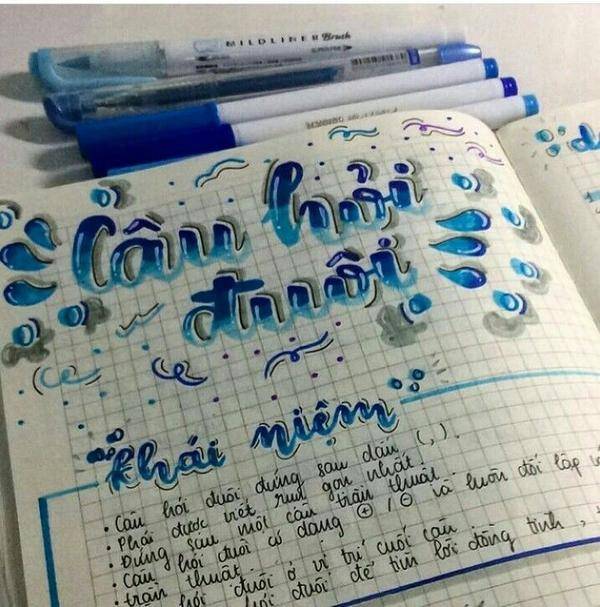 MILDLINER Brush
Câu hỏi
đuôi
khái niệm
• Câu hỏi đuôi đứng sau dấu (,).
• Phải được viết rút gọn nhất.
• Đứng sau một câu trần thuật.
• Câu hỏi đuôi có dạng ⊕/⊖ và luôn đối lập
trần thuật
hỏi đuôi ở vị trí cuối câu
hỏi đuôi để tìm lời đồng tình,